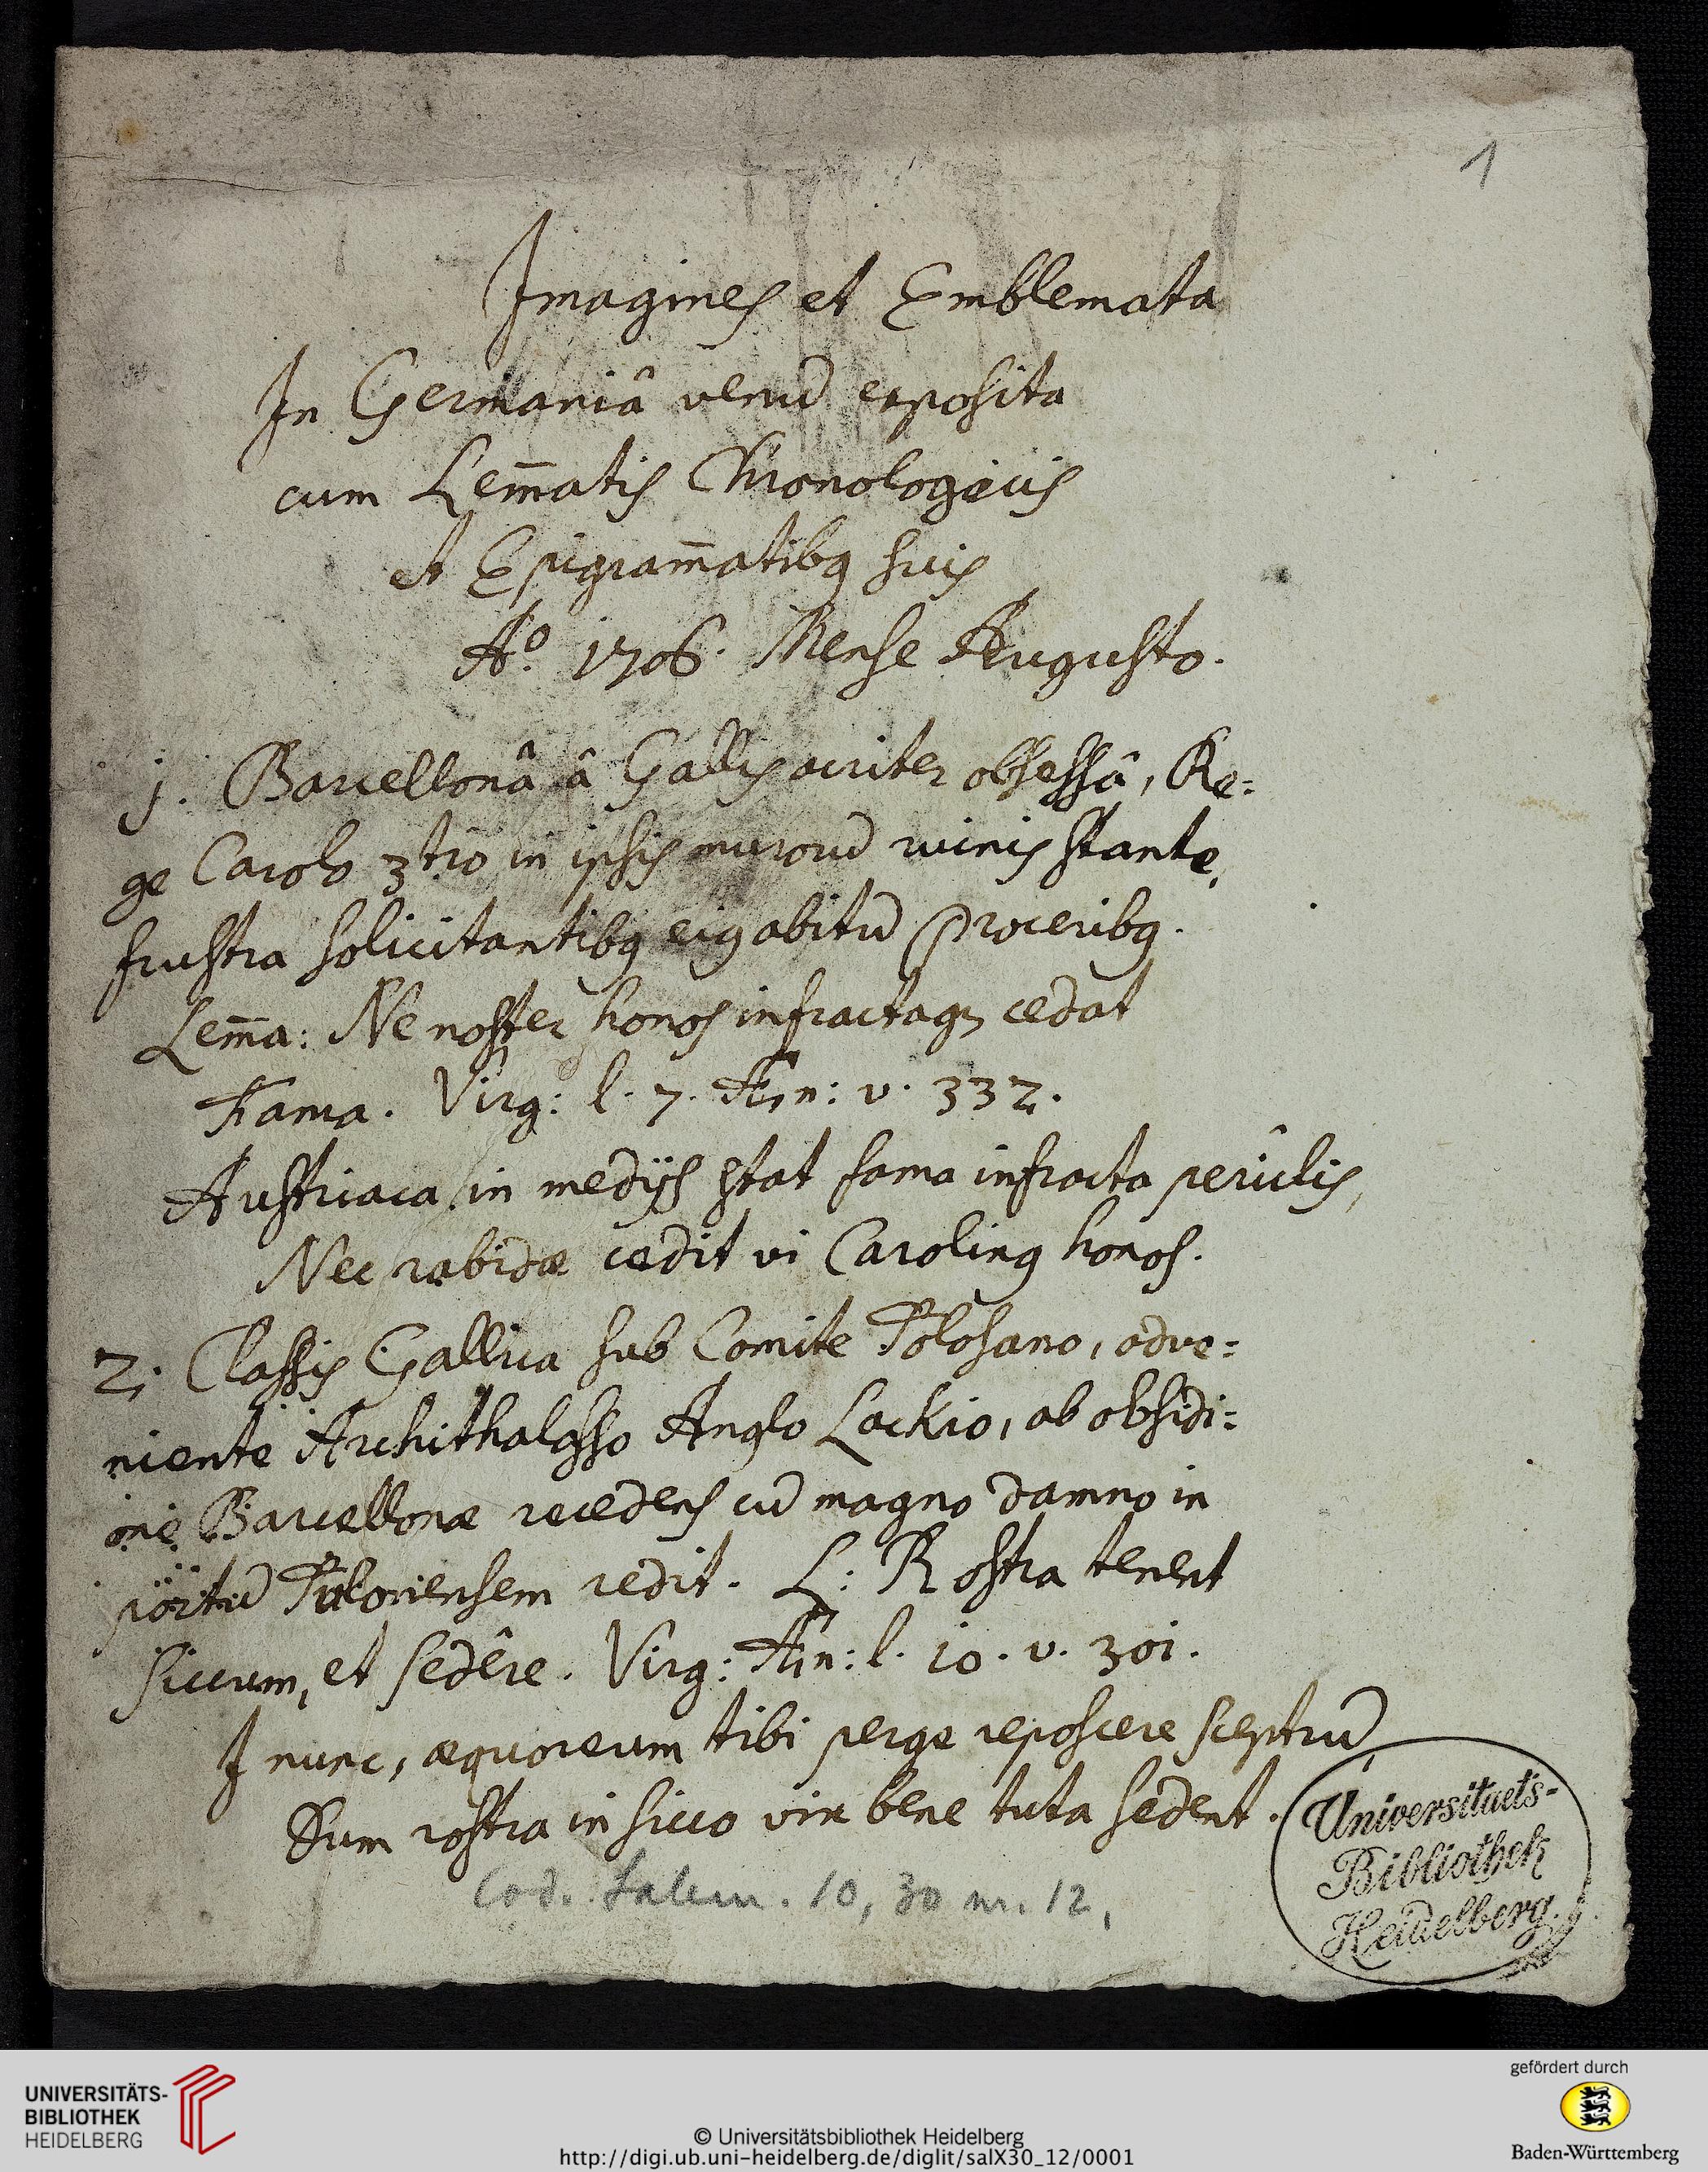 1
Imagines et Emblemata
In Germaniâ venũ exposita
cum Lem̄atis Chronologicis
et Epigram̄atibq suis
Aº. 1706. Mense Augusto.
1. Barcellonâ â Gallis acriter obsessâ, Re:
ge Carolo 3tio in ipsis murorũ ruinis stante,
frustra solicitantibq eiq abitũ Proceribq.
Lem̄a: Ne noster honos infractaqz cedat
Fama. Virg: l. 7. Æn: v. 332.
Austriaca in medijs stat fama infracta periclis,
Nec rabidæ cedit vi Carolinq honos.
2. Classis Gallica sub Comite Tolosano, adve:
niente Archithalasso Anglo Lackio, ab obsidi:
one Barcellonæ recedens cũ magno damno in
portũ Tulonensem redit. L: Rostra tenent
siccum, et sedêre. Virg: Æn: l. 10. v. 301.
I nunc, æquoreum tibi perge reposcere sceptrũ
Dum rostra in sicco vix bene tuta sedent.
Cod. Salem. 10, 30 nr. 12,
Universitaets-
Bibliothek
Heidelberg.
UNIVERSITÄTS-
BIBLIOTHEK
HEIDELBERG
© Universitätsbibliothek Heidelberg
http://digi.ub.uni-heidelberg.de/diglit/salX30_12/0001
gefördert durch
Baden-Württemberg